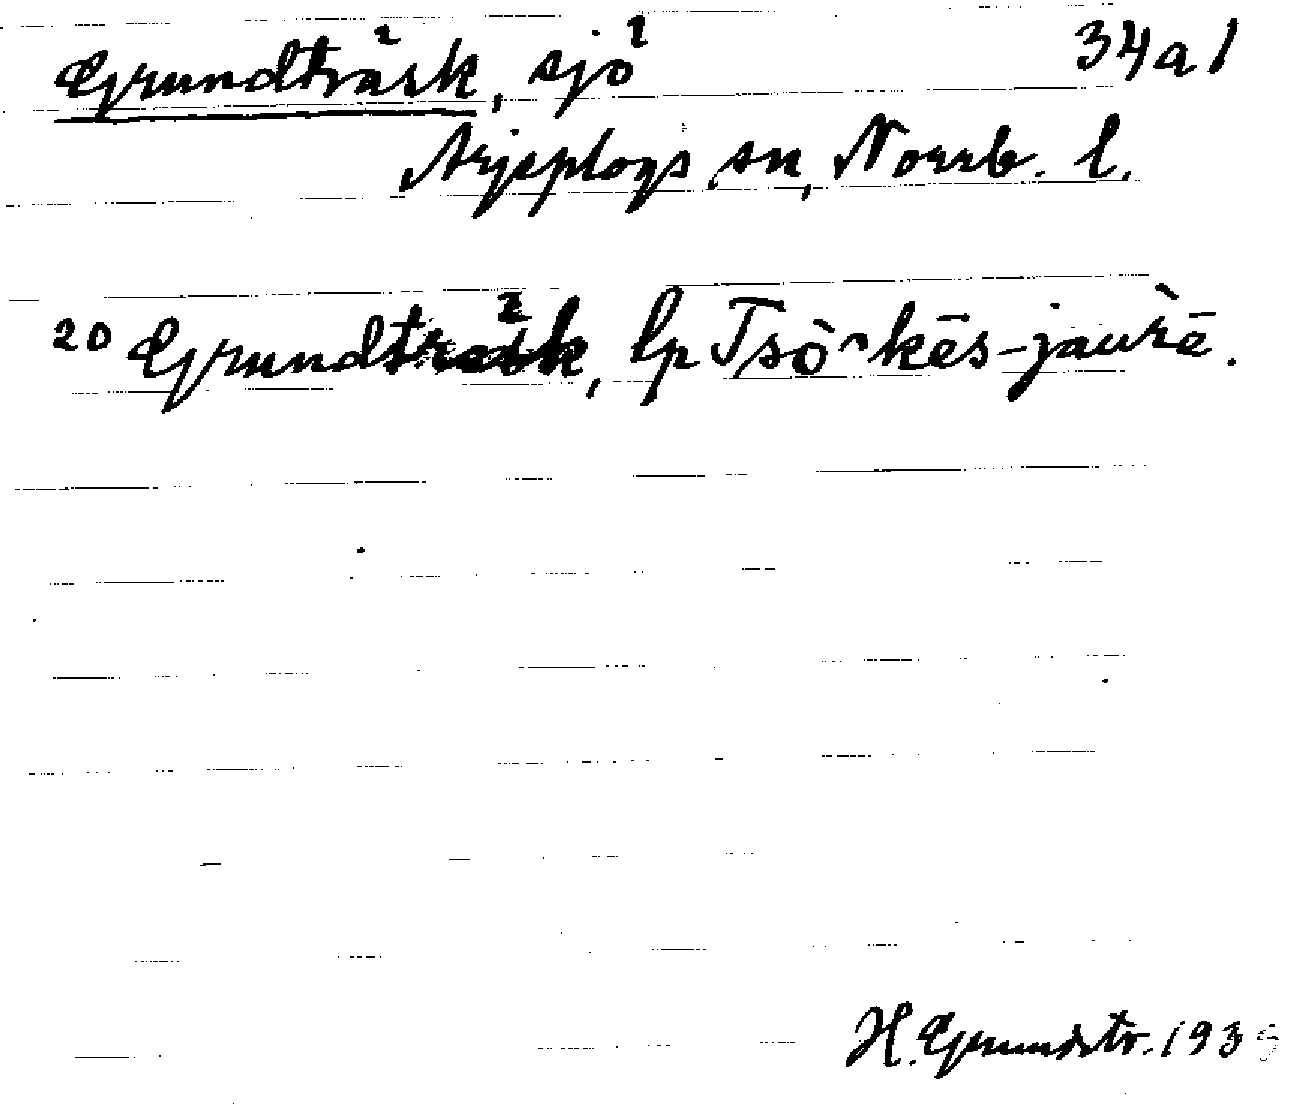 Grundträsk, sjö 34a1
Arjeplogs sn, Norrb. l.
20 Grundträsk, lp Tsò˄kēs-jaùrē.
H. Grundstr. 1935